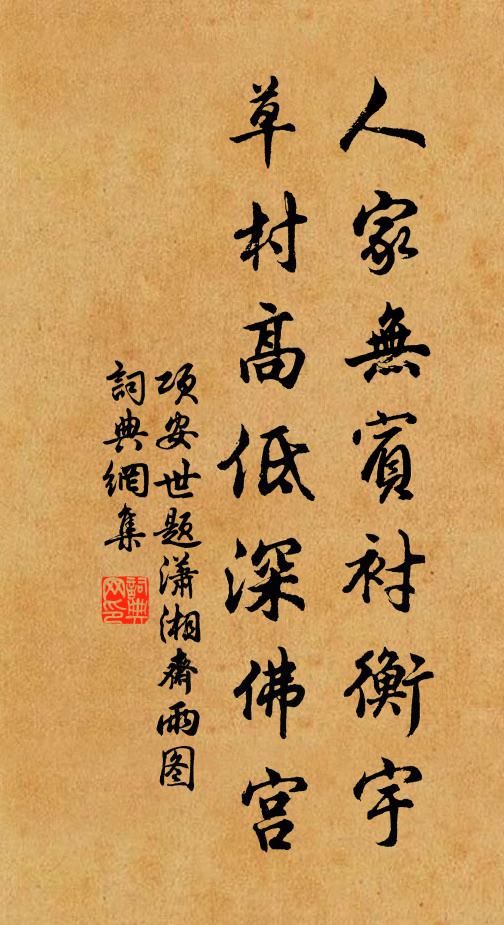 人家無賓衬衡宇
草村高低深佛宫
项安世题潇湘斋雨图
詞典網集
詞典
网印